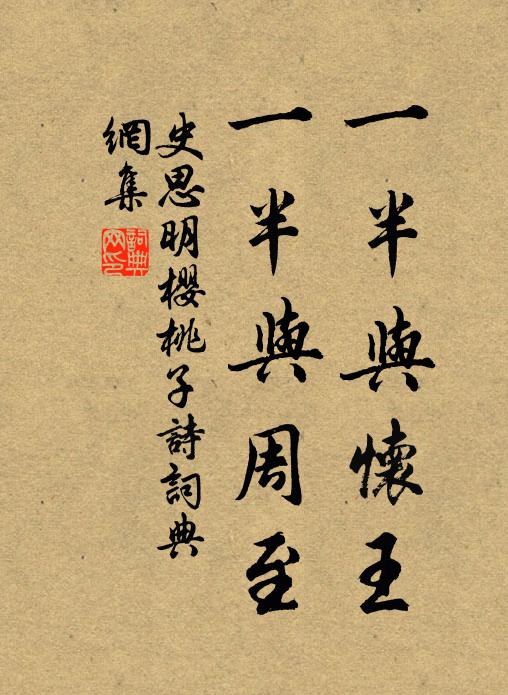 一半與懷王
一半與周至
史思明櫻桃子詩詞典
網集
詞典網印